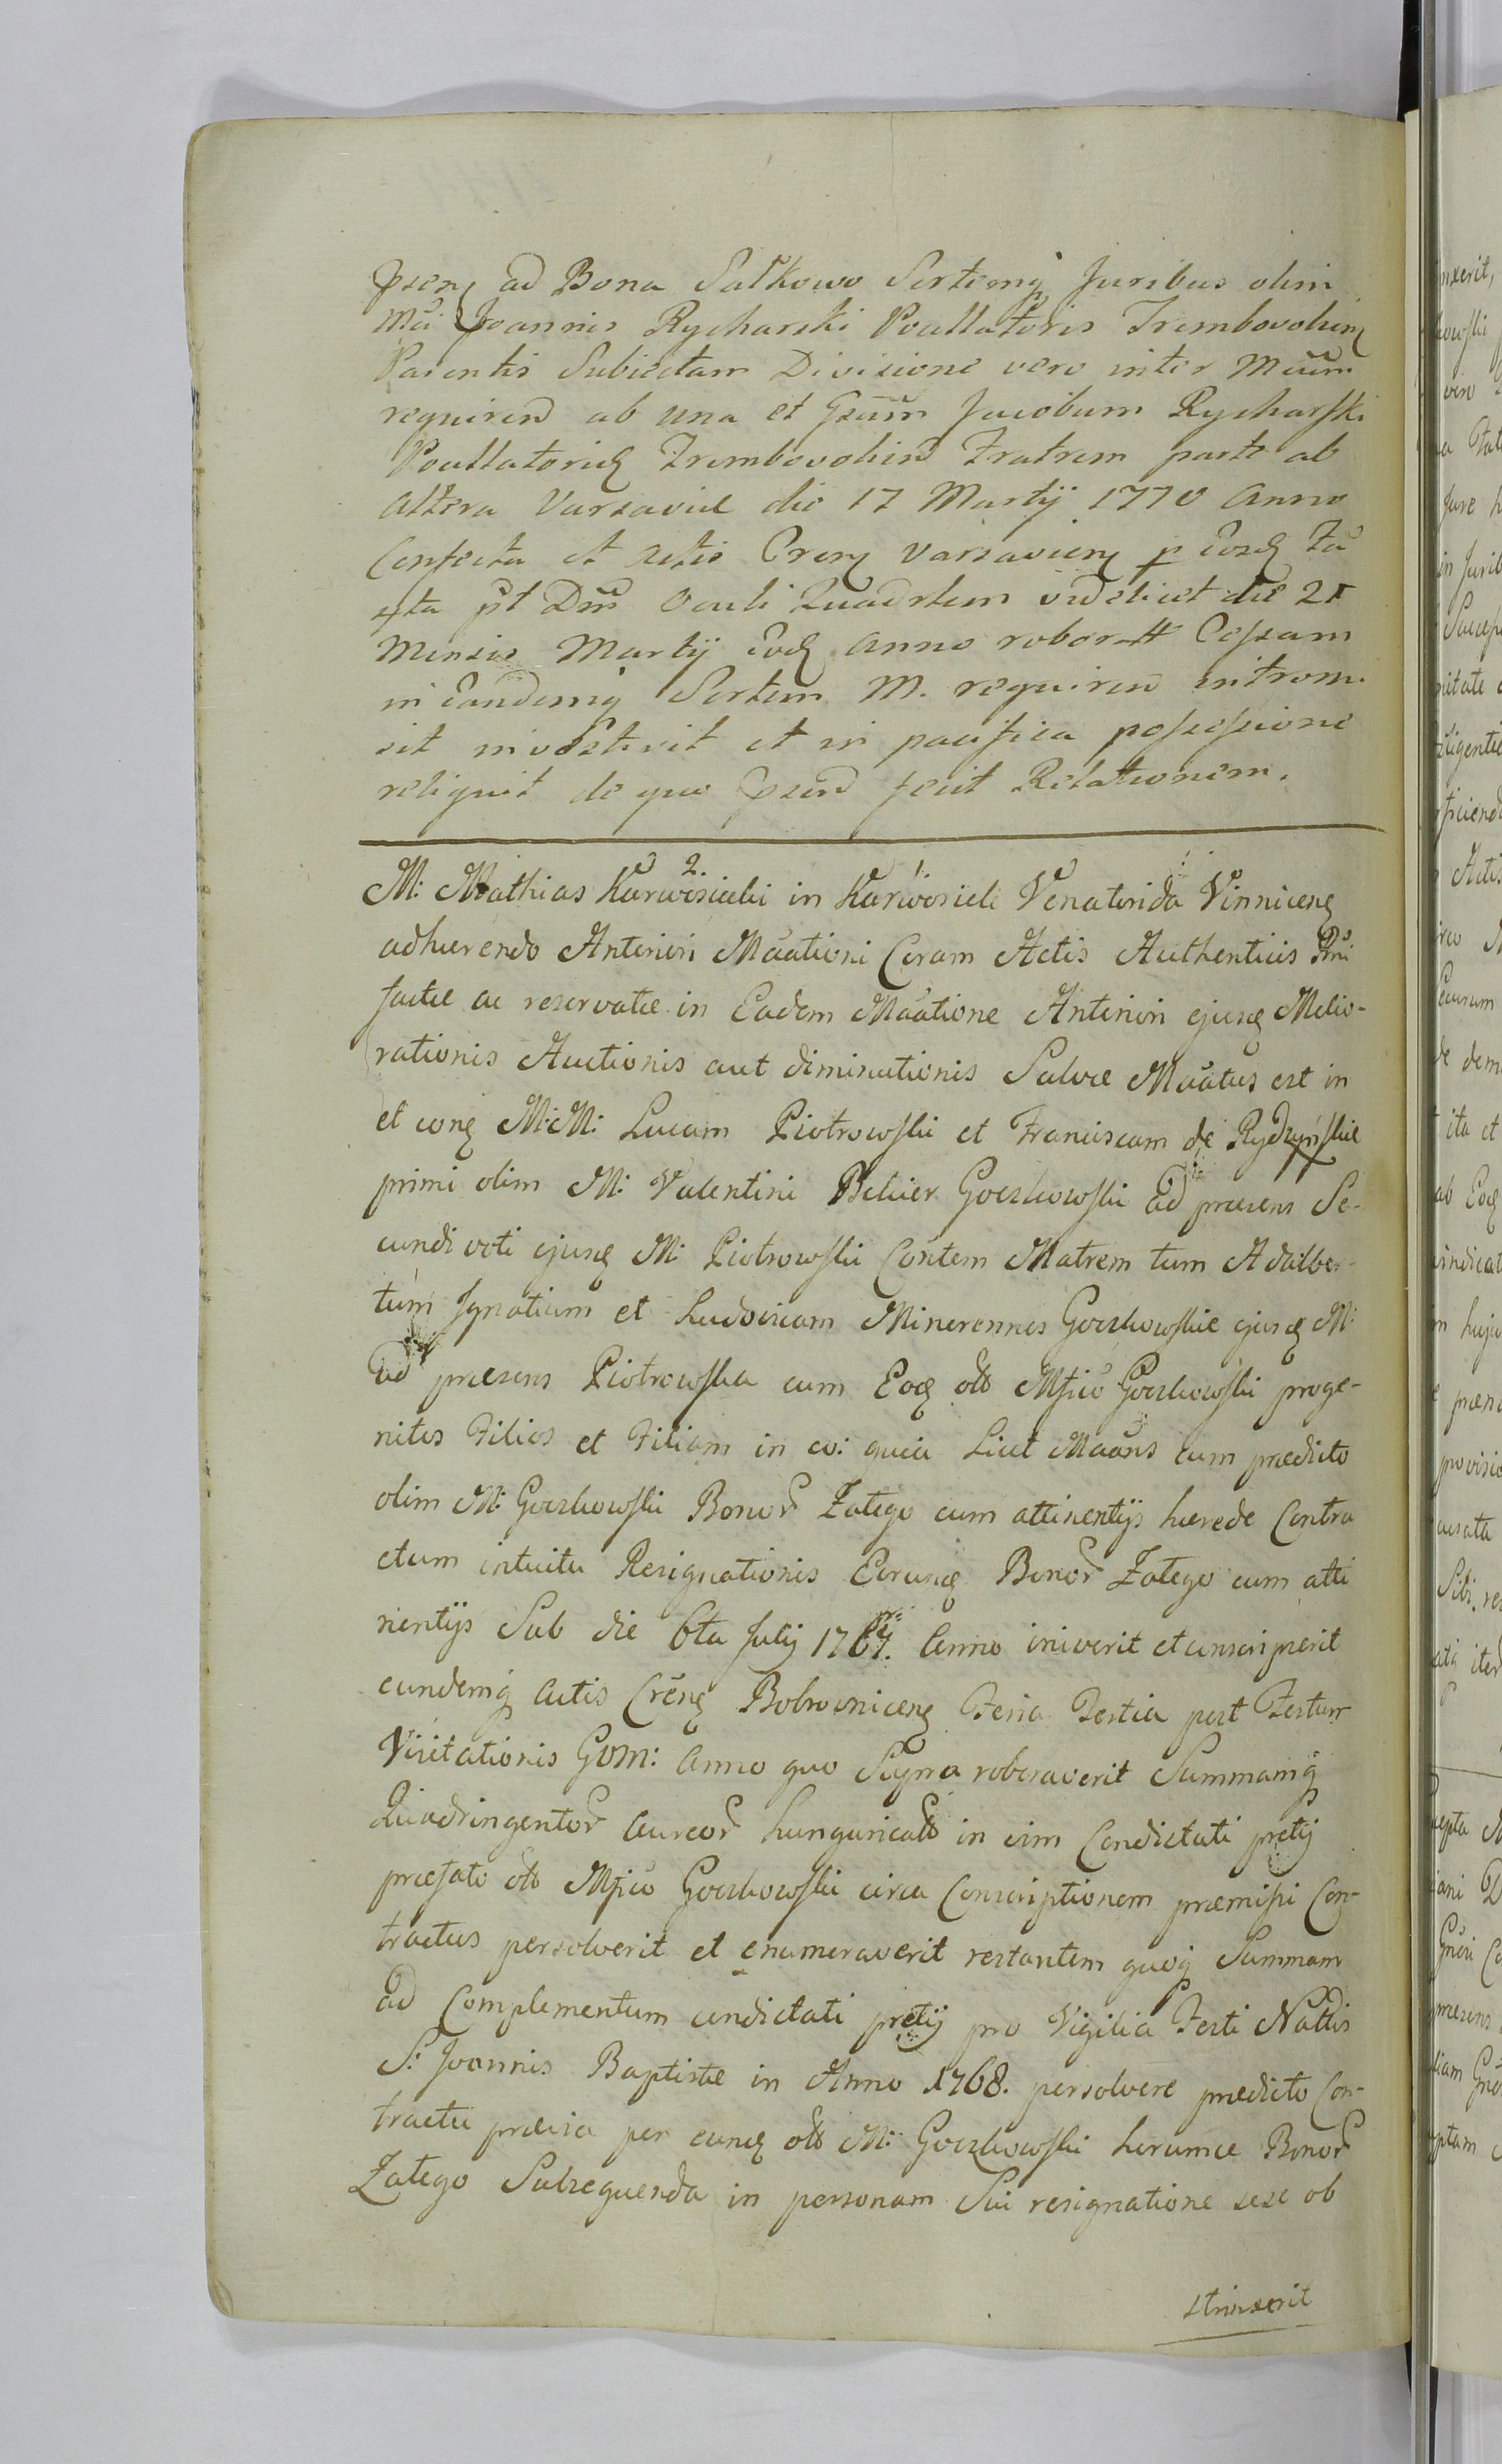 psens ad Bona Sałkowo Sortemq Juribus olim
Mci Joannis Rycharski Pocillatoris Trembovoliens
Parentis Subiectam Divisione vero inter Mcum
requirend ab una et Gsum Jacobum Rycharski
Pocillatorid Trembovolien Fratrem parte ab
altera Varsaviæ die 17 Martij 1770 Anno
Confecta et Actis Crens Varsaviens p Eosd Fa
4ta pt Dm Oculi Quadrlem videlicet die 21
Mensis Martij Eod Anno roboratt Cessam
in Eandemq Sortem M. requirend introm.
sit investivit et in pacifica possessione
reliquit de quo psend fecit Relationem.
2.
M: Mathias Karwosiecki in Karwosieki Venatorida Vinnicens
adhærendo Anteriori Maationi Coram Actis Authenticis Pnti
factæ ac reservatæ in Eadem Maatione Anteriori ejusq Melio-
rationis Auctionis aut diminutionis Salvæ Maatus est in
et conq M:M: Lucam Piotrowski et Franciscam de Rydzyńskie
primi olim M: Valentini Bekier Goczkowski ad præsens Se-
cundi voti ejusq M: Piotrowski Contem Matrem tum Adalber-
tum Ignatium et Ludovicam Minorennes Goczkowskie ejusq M:
ad præsens Piotrowska cum Eod olt Mfico Goczkowski proge-
nitos Filios et Filiam in eo: quia Licet Maans cum prædicto
olim M: Goczkowski Bonor Zatego cum attinentijs hærede Contra
ctum intuitu Resignationis Eorunq Bonor Zatego cum atti
nentijs Sub die 6ta Julij 1767. Anno iniverit et conscripserit
eundemq Actis Crens Bobrovnicens Feria Tertia post Festum
Visitationis GVM: Anno quo Supra roboraverit Summamq
Quadringentor Aureor hungaricalt in vim Condictati pretij
præfato olt Mfico Goczkowski circa Conscriptionem præmissi Con-
tractus persolverit et enumeraverit restantem quoq Summam
ad Complementum condictati pretij pro Vigilia Festi Nattis
S: Joannis Baptistæ in Anno 1768. persolvere prædicto Con-
tractu prævia per eunq olt M: Goczkowski horumce Bonor
Zatego Subsequenda in personam Sui resignatione sese ob
strinxerit